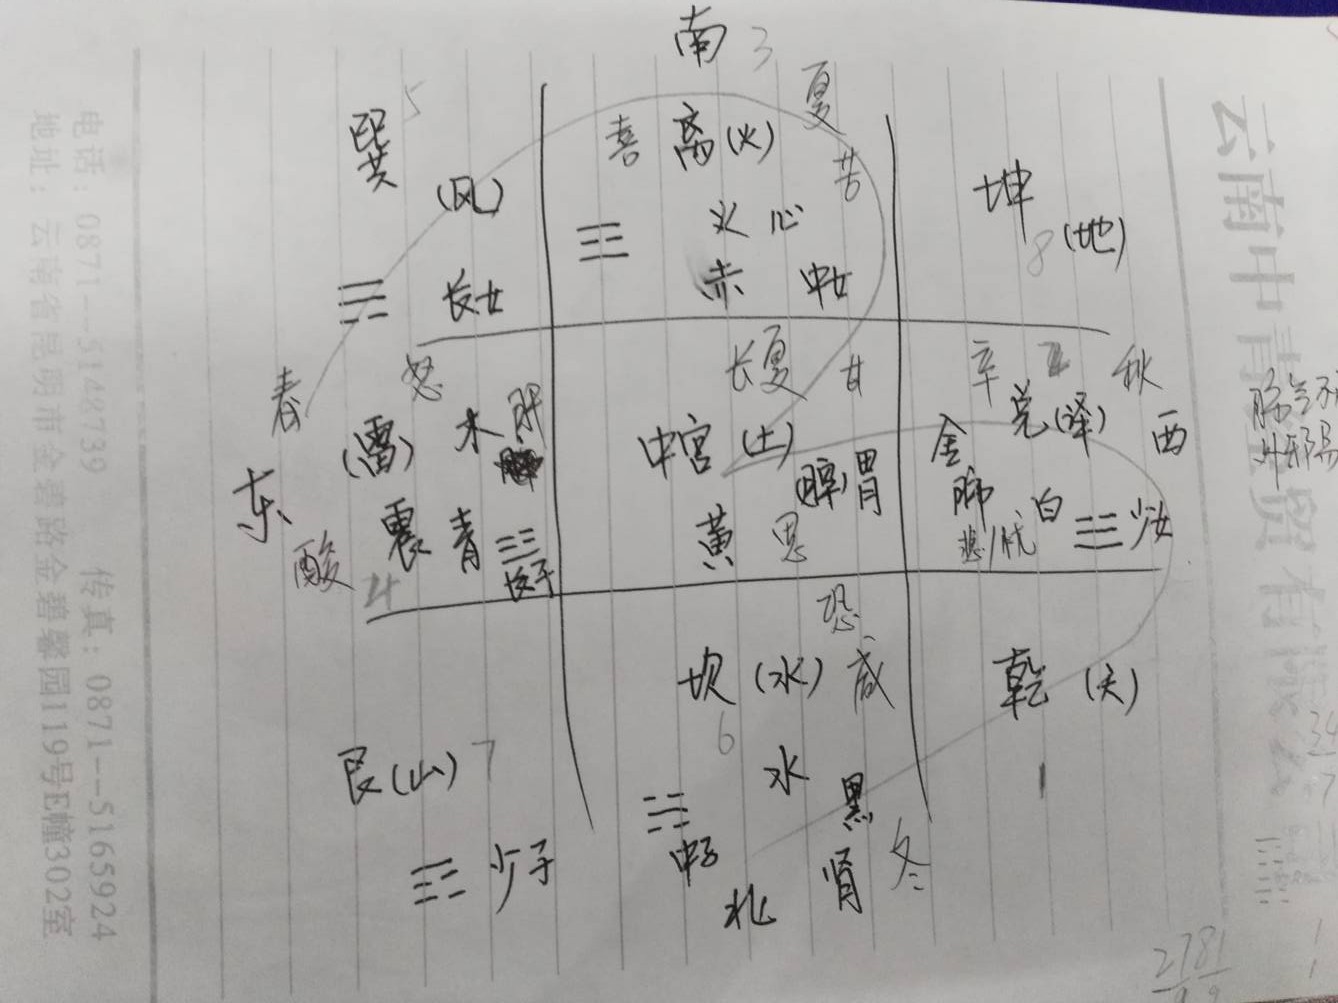 南 3
巽 5
(风)
☴ 长女
喜 离(火) 夏
苦
☲ 火 心
赤 中女
坤
8 (地)
春 怒
(雷) 木 肝
东 震 青 ☳
酸 4 长子
长夏 甘
中宫 (土)
(脾) 胃
黄 思
辛 2 秋
金 兑(泽) 西
肺 白 ☱ 少女
悲/忧
艮(山) 7
☶ 少子
恐
坎 (水) 咸
6
水
☵ 黑
中子 肾 冬
北
乾 (天)
1
外邪易
34
7
2781
电话：0871--5148739 传真：0871--5165924
地址：云南省昆明市金碧路金碧馨园119号E幢302室